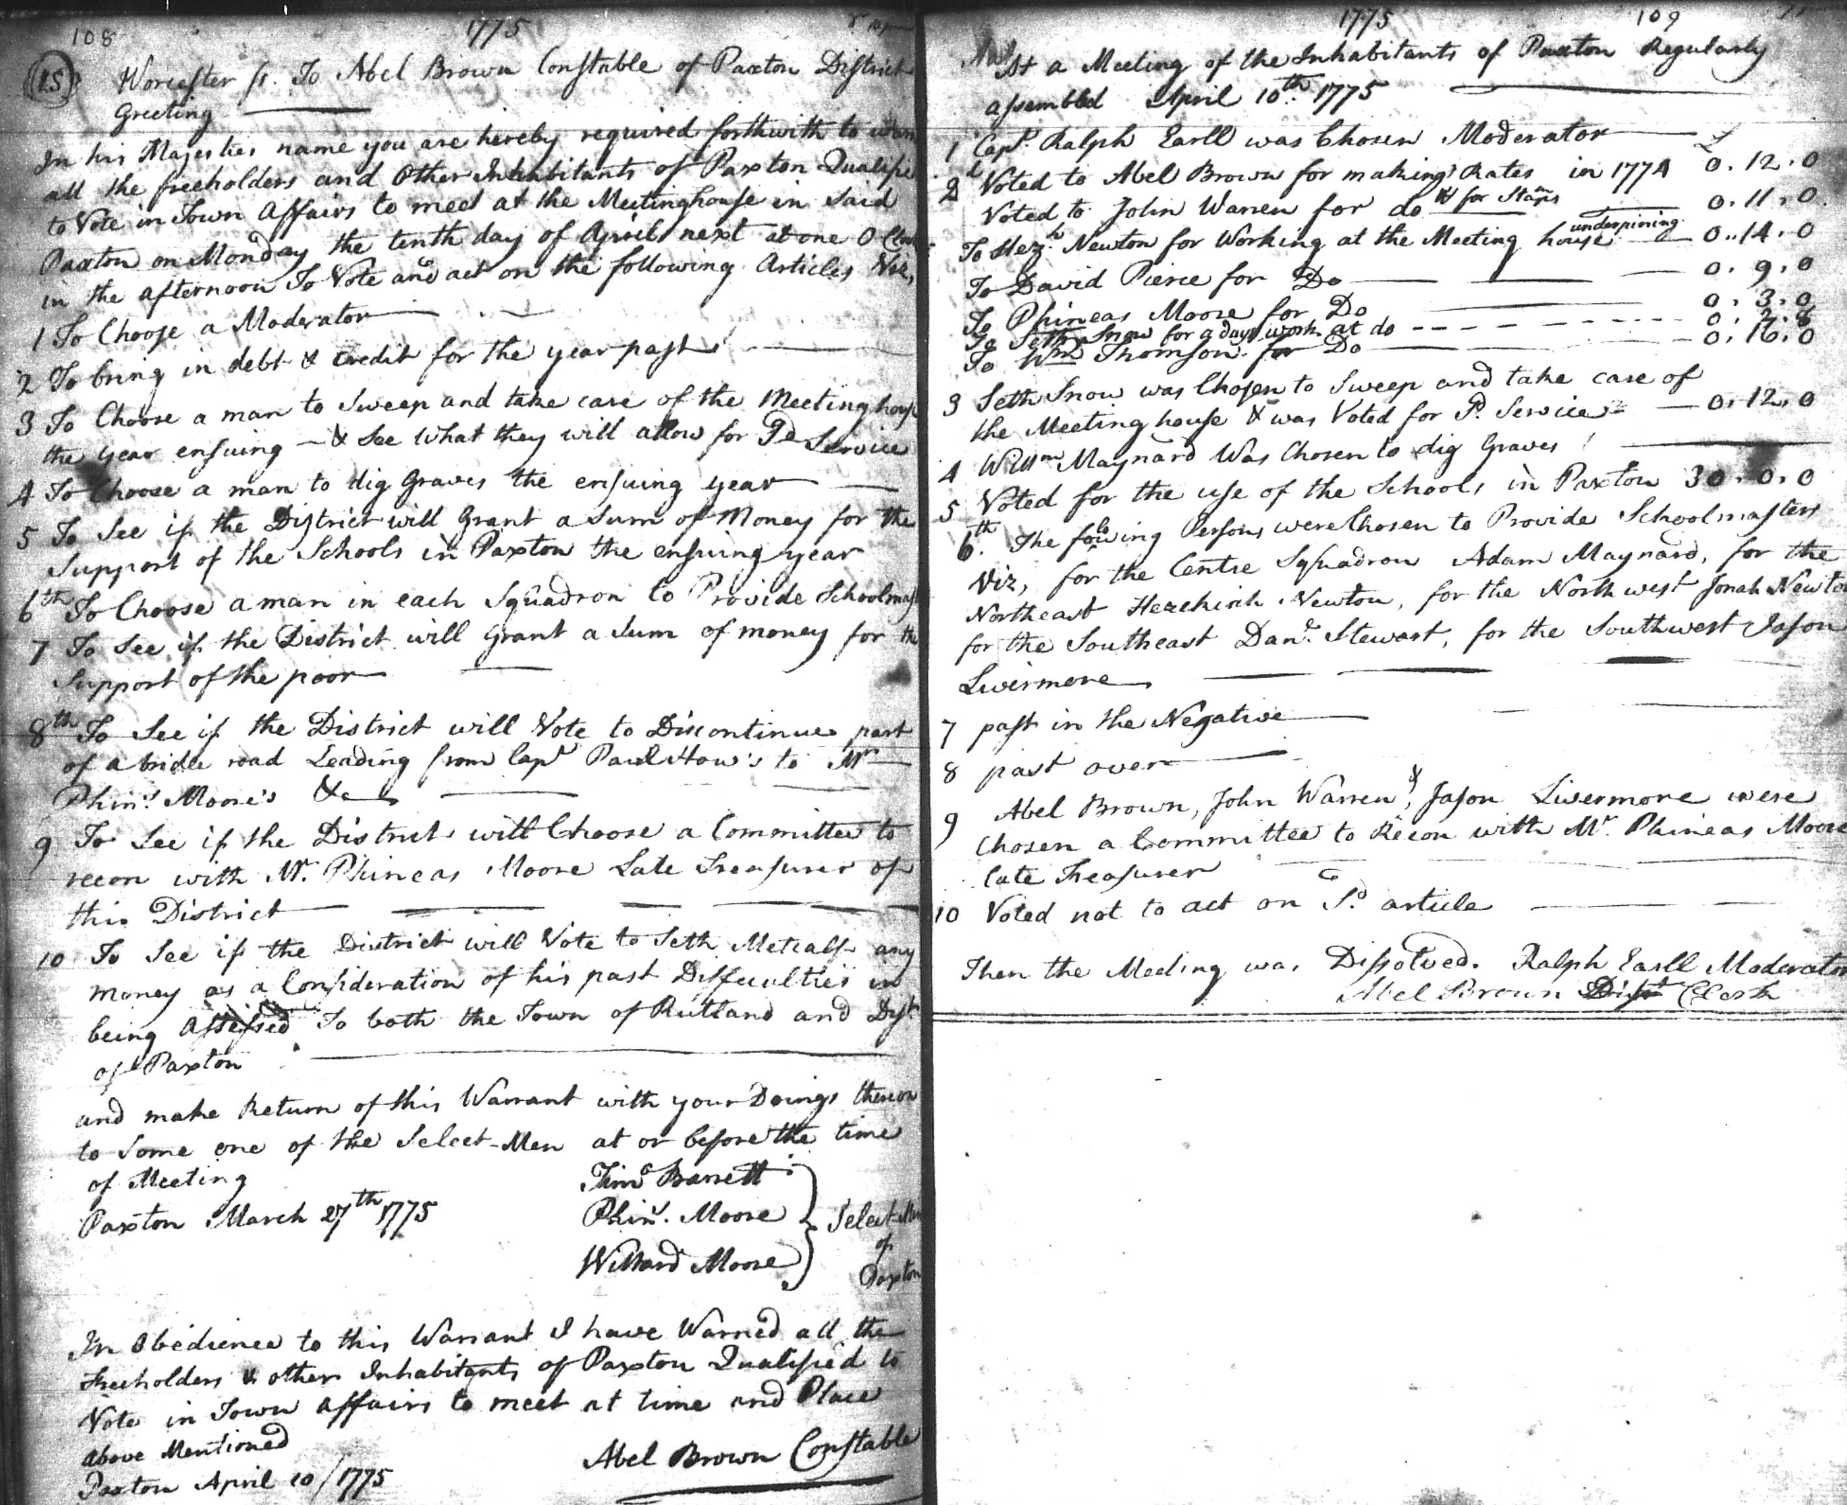 108
1775
LS
Worcester ss. To Abel Brown Constable of Paxton District
Greeting
In his Majesties name you are hereby required forthwith to warn
all the freeholders and Other Inhabitants of Paxton Qualified
to Vote in Town Affairs to meet at the Meetinghouse in Said
Paxton on Monday the tenth day of April next at one O Clock
in the afternoon To Vote and act on the following Articles Viz,
1 To Choose a Moderator
2 To bring in debt & Credit for the year past
3 To Choose a man to Sweep and take care of the Meeting house
the year ensuing & See What they will allow for Sd Service
4 To Choose a man to dig Graves the ensuing year
5 To See if the District will Grant a Sum of Money for the
Support of the Schools in Paxton the ensuing year
6th To Choose a man in each Squadron to Provide Schoolmast
7 To See if the District will Grant a Sum of money for the
Support of the poor
8th To See if the District will Vote to Discontinue part
of a bridle road Leading from Capt Paul How's to Mr
Phins Moore's &c
9 To See if the District will Choose a Committee to
recon with Mr. Phineas Moore Late Treasurer of
this District
10 To See if the District will Vote to Seth Metcalf any
money as a Consideration of his past Difficulties in
being Assessed To both the Town of Rutland and Dist
of Paxton
and make Return of this Warrant with your Doings thereon
to Some one of the Select-Men at or before the time
of Meeting
Paxton March 27th 1775
Timo Barrett
Phins. Moore
Willard Moore
Select Men
of
Paxton
In Obedience to this Warrant I have Warned all the
freeholders & other Inhabitants of Paxton Qualified to
Vote in Town affairs to meet at time and Place
above Mentioned
Paxton April 10/1775
Abel Brown Constable
1775
109
At a Meeting of the Inhabitants of Paxton Regularly
assembled April 10th 1775
1 Capt. Ralph Earll was Chosen Moderator £
2 Voted to Abel Brown for making Rates in 1774 0.12.0
Voted to John Warren for do & for Stamps 0.11.0
To Hezh Newton for Working at the Meeting house underpining 0.14.0
To David Pierce for Do 0.9.0
To Phineas Moore for Do 0.3.0
To Seth Snow for a days work at do 0.2.8
To Wm Thomson for Do 0.16.0
3 Seth Snow was Chosen to Sweep and take care of
the Meeting house & was Voted for Sd. Service 0.12.0
4 Willm Maynard Was Chosen to dig Graves
5 Voted for the use of the Schools in Paxton 30.0.0
6th. The following Persons were Chosen to Provide Schoolmasters
Viz, for the Centre Squadron Adam Maynard, for the
Northeast Hezekiah Newton, for the North west Jonah Newton
for the Southeast Danl. Stewart, for the Southwest Jason
Livermore
7 past in the Negative
8 past over
9 Abel Brown, John Warren, & Jason Livermore were
Chosen a Committee to Recon with Mr. Phineas Moore
late Treasurer
10 Voted not to act on Sd. article
Then the Meeting was Dissolved. Ralph Earll Moderator
Abel Brown Dist Clerk